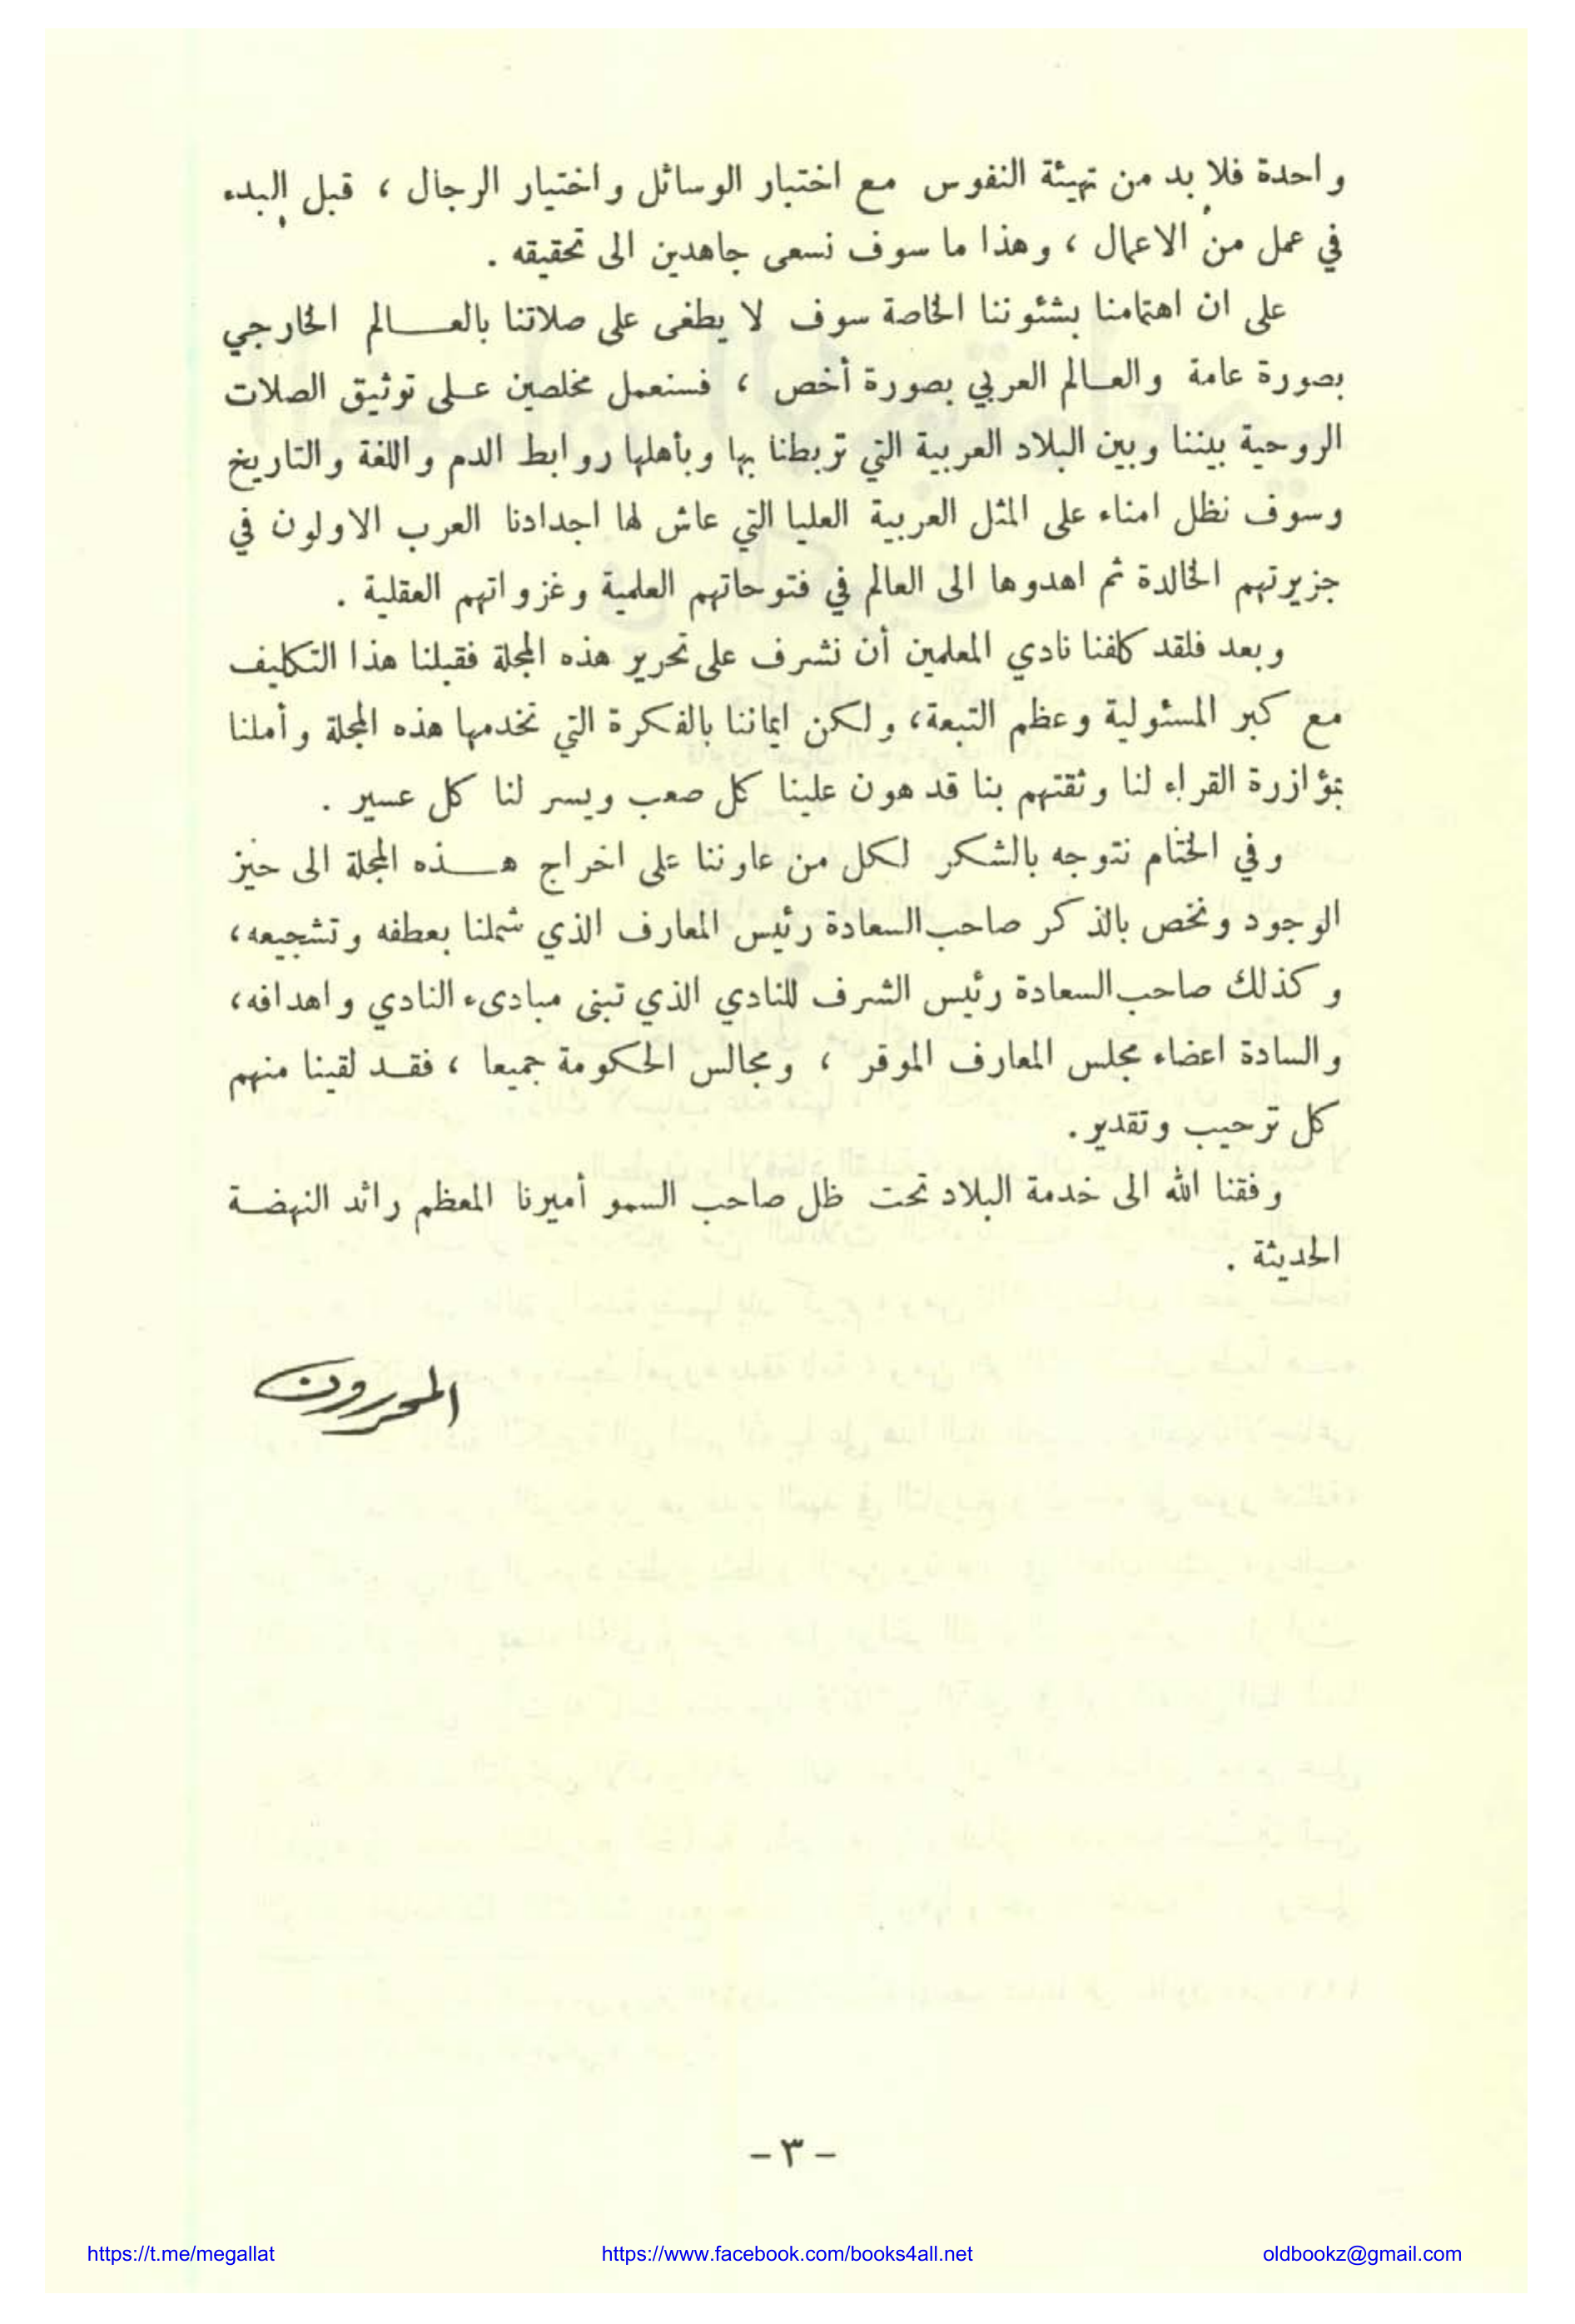 واحدة فلا بد من تهيئة النفوس مع اختبار الوسائل واختيار الرجال ، قبل البدء
في عمل من الاعمال ، وهذا ما سوف نسعى جاهدين الى تحقيقه .
على ان اهتمامنا بشئوننا الخاصة سوف لا يطغى على صلاتنا بالعالم الخارجي
بصورة عامة والعالم العربي بصورة أخص ، فسنعمل مخلصين على توثيق الصلات
الروحية بيننا وبين البلاد العربية التي تربطنا بها وبأهلها روابط الدم واللغة والتاريخ
وسوف نظل امناء على المثل العربية العليا التي عاش لها اجدادنا العرب الاولون في
جزيرتهم الخالدة ثم اهدوها الى العالم في فتوحاتهم العلمية وغزواتهم العقلية .
وبعد فلقد كلفنا نادي المعلمين أن نشرف على تحرير هذه المجلة فقبلنا هذا التكليف
مع كبر المسئولية وعظم التبعة، ولكن ايماننا بالفكرة التي تخدمها هذه المجلة وأملنا
بمؤازرة القراء لنا وثقتهم بنا قد هون علينا كل صعب ويسر لنا كل عسير .
وفي الختام نتوجه بالشكر لكل من عاوننا على اخراج هذه المجلة الى حيز
الوجود ونخص بالذكر صاحب السعادة رئيس المعارف الذي شملنا بعطفه وتشجيعه،
وكذلك صاحب السعادة رئيس الشرف للنادي الذي تبنى مبادىء النادي واهدافه،
والسادة اعضاء مجلس المعارف الموقر ، ومجالس الحكومة جميعا ، فقد لقينا منهم
كل ترحيب وتقدير.
وفقنا الله الى خدمة البلاد تحت ظل صاحب السمو أميرنا المعظم رائد النهضة
الحديثة .
المحررون
- ٣ -
https://t.me/megallat https://www.facebook.com/books4all.net oldbookz@gmail.com